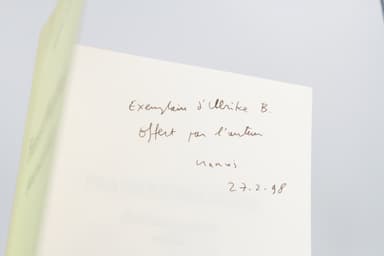 Exemplaire d'Ulrike B.
offert par l'auteur
27-2-98